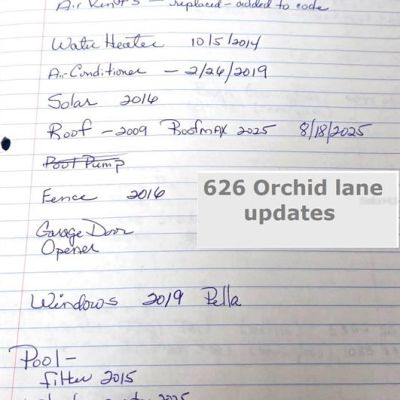 Air Vents – replaced – added to code
Water Heater 10/5/2014
Air Conditioner – 2/26/2019
Solar 2016
Roof – 2009 RoofMAX 2025 8/18/2025
Pool Pump
Fence 2016
Garage Door
Opener
626 Orchid lane
updates
Windows 2019 Pella
Pool –
filter 2015
2025